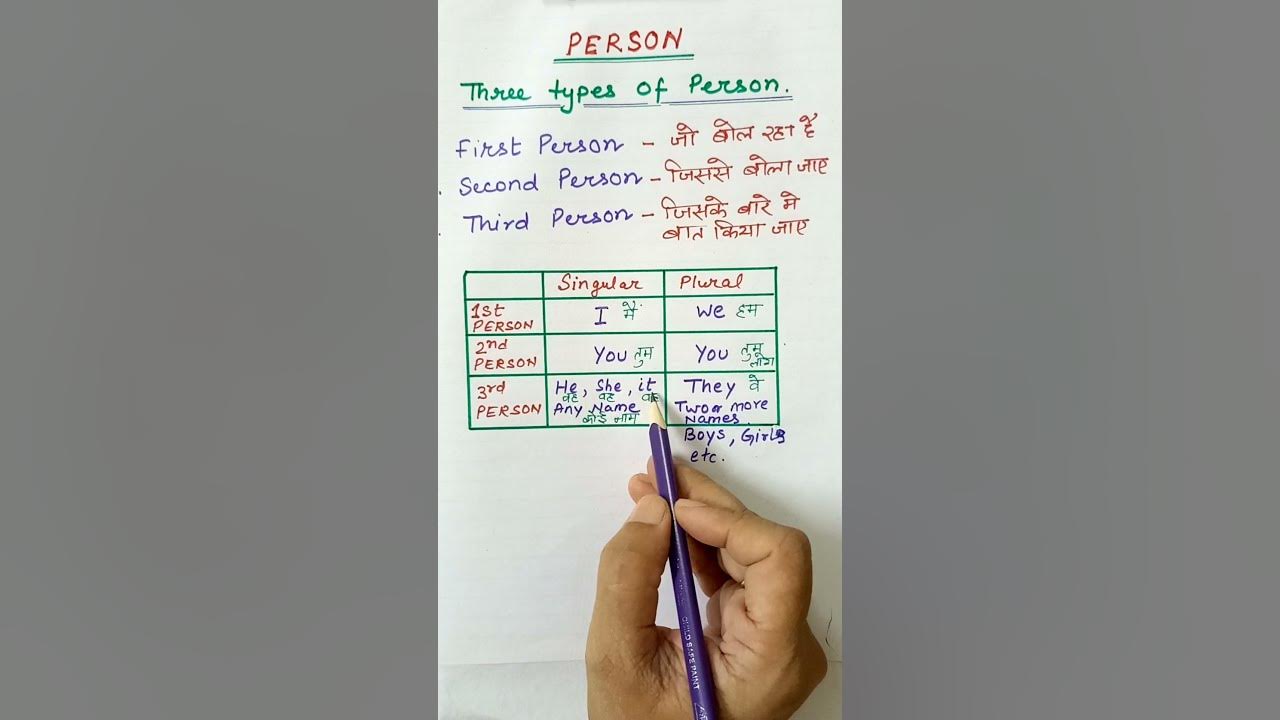 PERSON
Three types of Person.
First Person - जो बोल रहा है
Second Person - जिससे बोला जाए
Third Person - जिसके बारे मे
बात किया जाए
Singular Plural
1st PERSON I मैं We हम
2nd PERSON You तुम You तुम लोग
3rd PERSON He, She, it They वे
वह वह वह
Any Name Two or more
कोई नाम Names.
Boys, Girls
etc.
CHILD SAFE PAINT